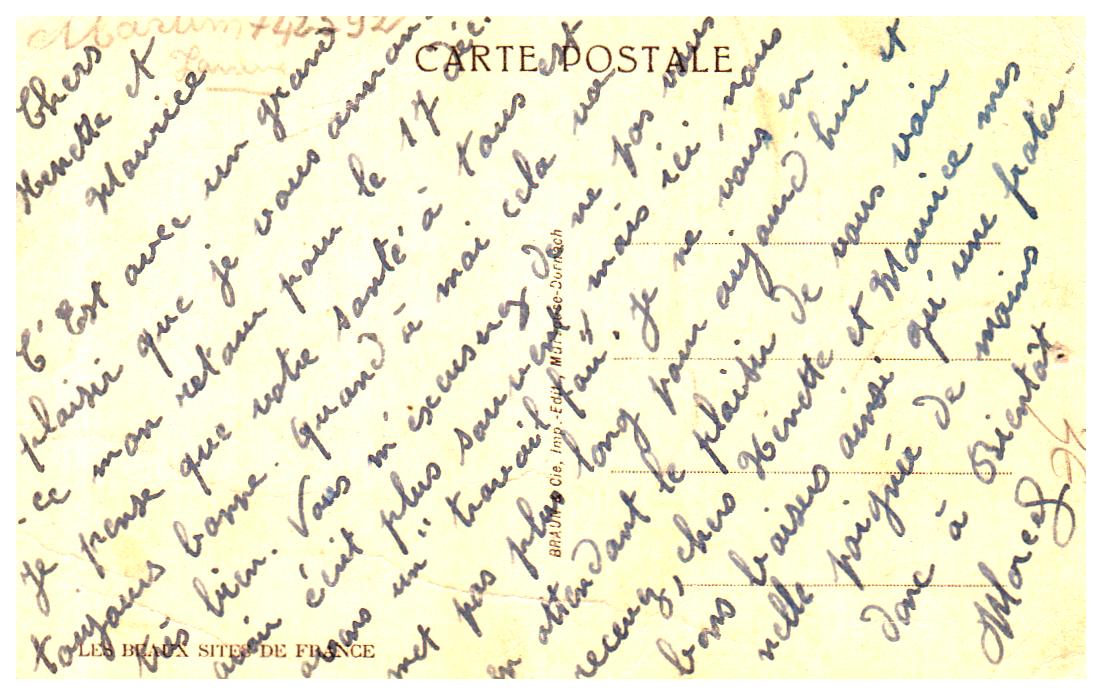 CARTE POSTALE
Chers
Henette et
Maurice
C'Est avec un grand
plaisir que je vous annon-
-ce mon retour pour le 17 Déc.
Je pense que votre santé à tous est
toujours bonne. Quand à moi cela va
très bien. Vous m'excuserez de ne pas vous
avoir écrit plus souvent mais ici nous
avons un "travail fou". Je ne vous en
met pas plus long pour aujourd hui et
en attendant le plaisir de vous voir
recevez, chers Henette et Maurice mes
bons baisers ainsi qu'une frater-
nelle poignée de mains
donc à Bientôt.
Marcel
BRAUN & Cie, Imp.-Edit., Mulhouse-Dornach
LES BEAUX SITES DE FRANCE